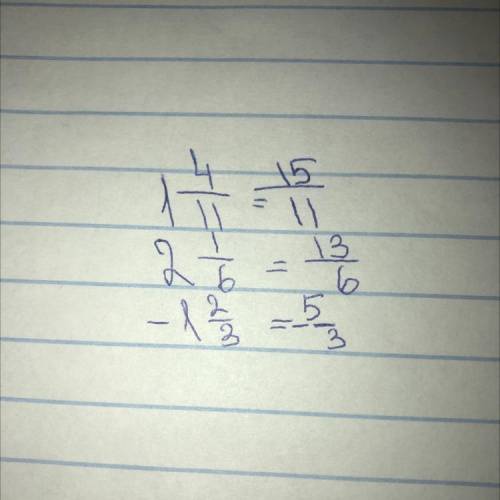 1 4/11 = 15/11
2 1/6 = 13/6
-1 2/3 = -5/3